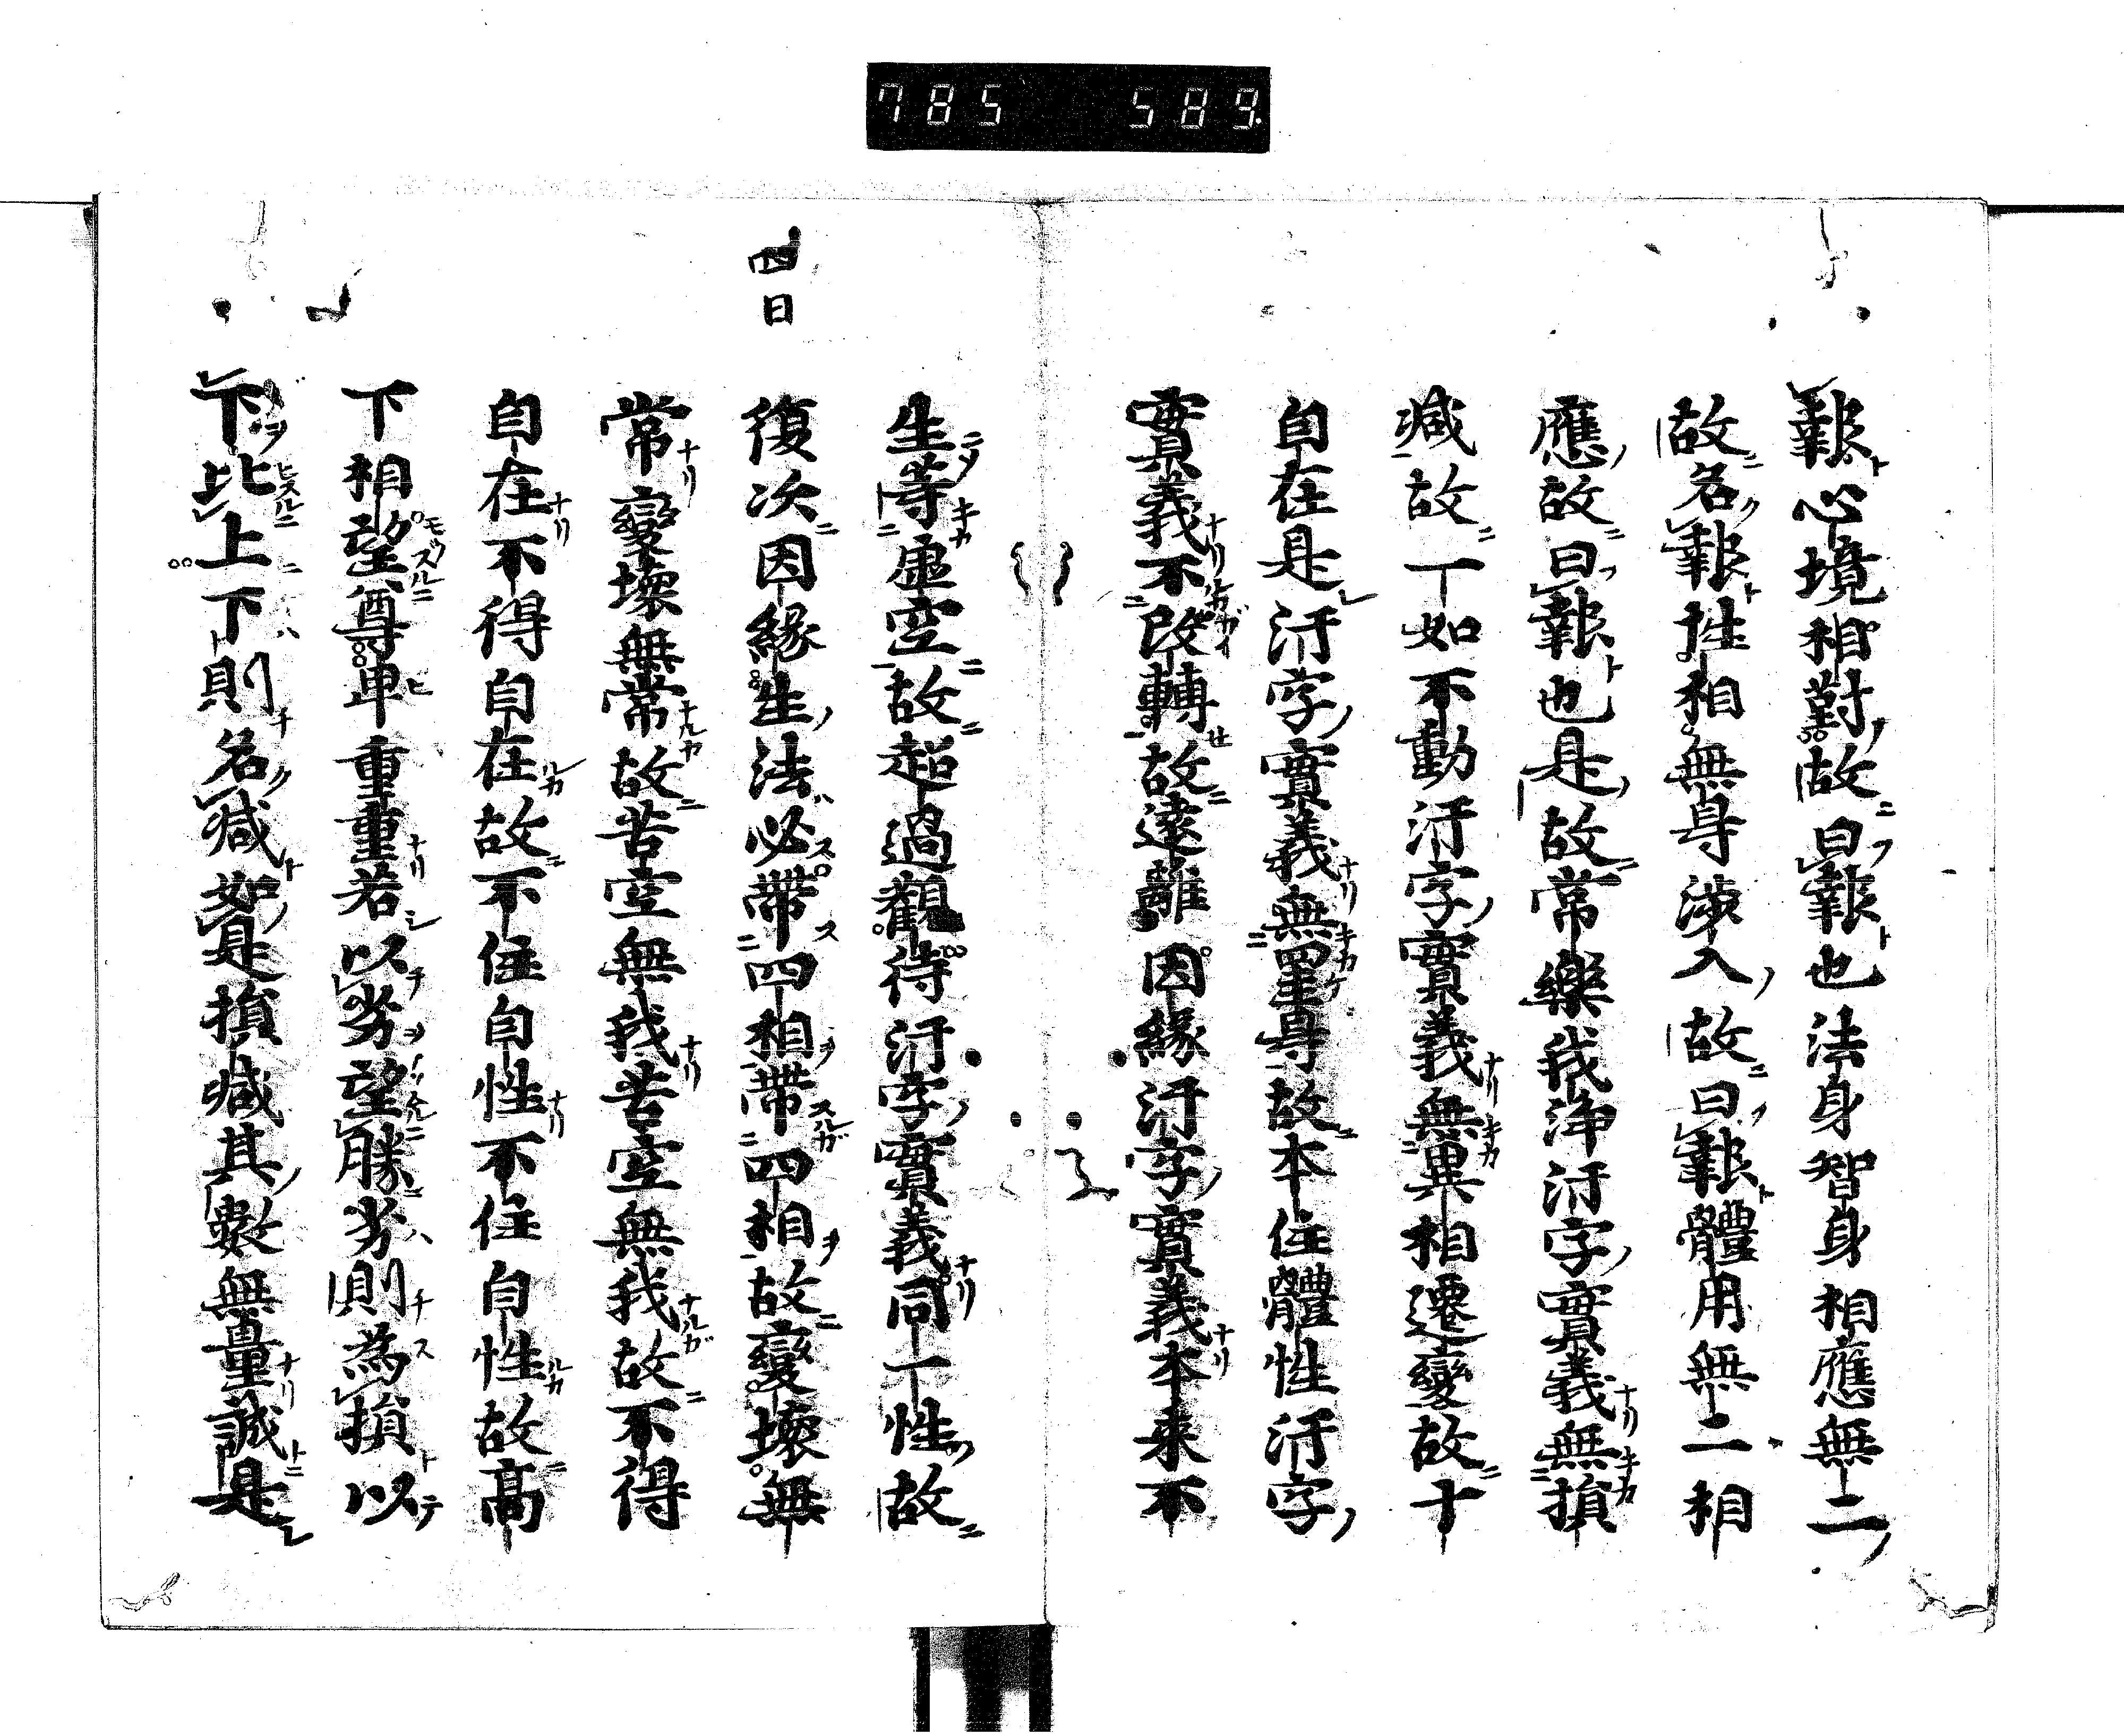 785 589
報心境相對故曰報也法身智身相應無二
故名報性相無㝵渉入故曰報體用無二相
應故曰報也是故常樂我淨汙字實義無損
減故一如不動汙字實義無異相遷變故十
自在是汙字實義無罣㝵故本住體性汙字
實義不改轉故遠離因緣汙字實義本来不
生等虛空故超過觀待汙字實義同一性故
四曰
復次因緣生法必帶四相帶四相故變壞無
常變壞無常故苦空無我苦空無我故不得
自在不得自在故不住自性不住自性故高
下相望尊卑重重若以劣望勝劣則為損以
下比上下則名減如是損減其數無量誠是